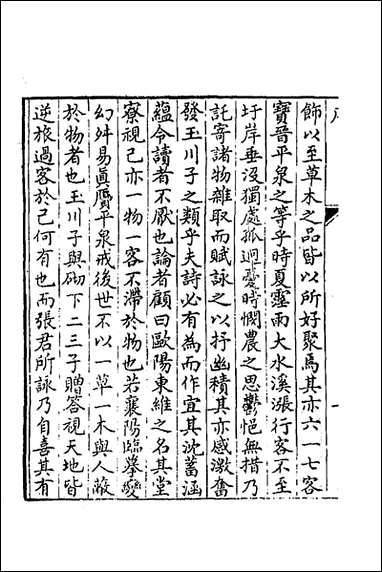 飾以至草木之品皆以所好聚焉其亦六一七客
寶晉平泉之等乎時夏靈雨大水溪漲行客不至
圩岸垂沒獨處孤迥憂時憫農之思鬱悒無措乃
託寄諸物雜取而賦詠之以抒幽積其亦感激奮
發玉川子之類乎夫詩必有為而作宜其沈蓄涵
蘊令讀者不厭也論者顧曰歐陽東維之名其堂
寮視己亦一物一客不滯於物也若襄陽臨摹變
幻舛易眞贗平泉戒後世不以一草一木與人蔽
於物者也玉川子與砌下二三子贈答視天地皆
逆旅過客於己何有也而張君所詠乃自喜其有